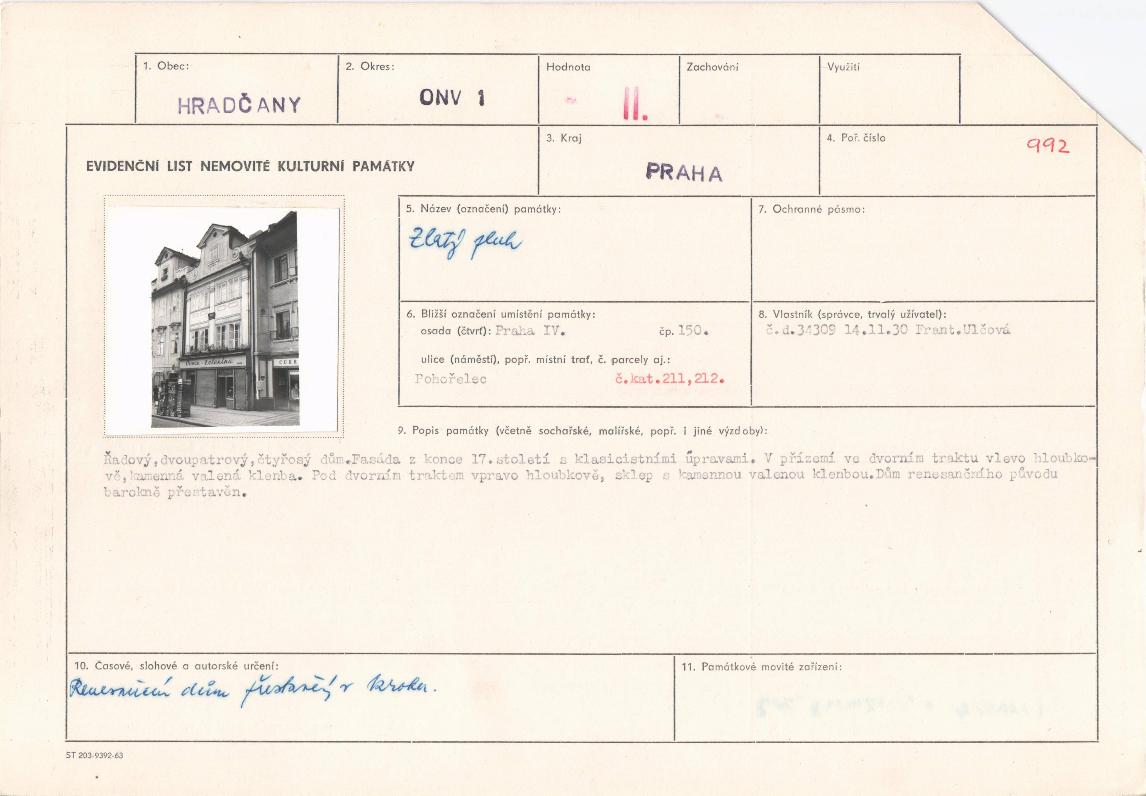 1. Obec:
HRADČANY
2. Okres:
ONV 1
Hodnota
- II.
Zachování
Využití
EVIDENČNÍ LIST NEMOVITÉ KULTURNÍ PAMÁTKY
3. Kraj
PRAHA
4. Poř. číslo
992
5. Název (označení) památky:
Zlatý pluh
7. Ochranné pásmo:
6. Bližší označení umístění památky:
osada (čtvrť): Praha IV. čp. 150.
ulice (náměstí), popř. místní trať, č. parcely aj.:
Pohořelec č.kat.211,212.
8. Vlastník (správce, trvalý uživatel):
č.d.34309 14.11.30 Frant.Ulčová
9. Popis památky (včetně sochařské, malířské, popř. i jiné výzdoby):
Řadový,dvoupatrový,čtyřosý dům.Fasáda z konce 17.století s klasicistními úpravami. V přízemí ve dvorním traktu vlevo hloubko-
vě,kamenná valená klenba. Pod dvorním traktem vpravo hloubkově, sklep s kamennou valenou klenbou.Dům renesančního původu
barokně přestavěn.
10. Časové, slohové a autorské určení:
Renesanční dům přestavěný v baroku.
11. Památkové movité zařízení:
ST 203-9392-63